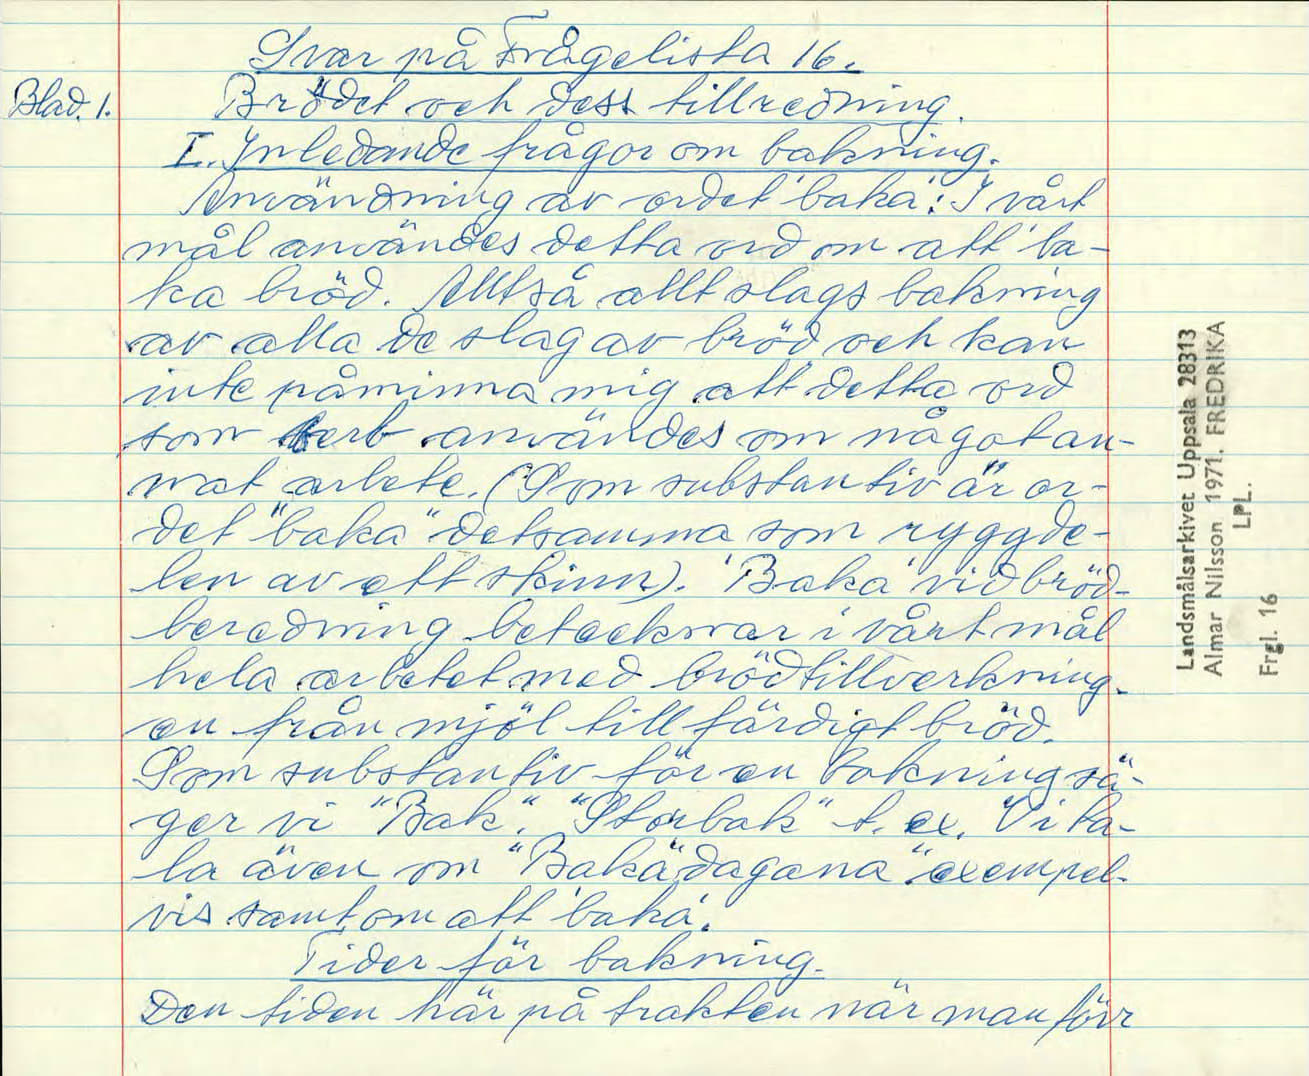 Svar på Frågelista 16.
Blad. 1.
Brödet och dess tillredning.
I. Inledande frågor om bakning.
Användning av ordet 'baka': I vårt
mål användes detta ord om att 'ba-
ka bröd. Alltså allt slags bakning
av alla de slag av bröd och kan
inte påminna mig att detta ord
som verb användes om något an-
nat arbete. (Som substantiv är or-
det "baka" detsamma som ryggde-
len av ett skinn). 'Baka' vid bröd-
beredning betecknar i vårt mål
hela arbetet med brödtillverkning-
en från mjöl till färdigt bröd.
Som substantiv för en bakning sä-
ger vi "Bak". "Storbak" t. ex. Vi ta-
la även om "Bakädagana" exempel-
vis samt om att 'baka'.
Tider för bakning.
Den tiden här på trakten när man förr
Landsmålsarkivet Uppsala 28313
Almar Nilsson 1971. FREDRIKA
LPL.
Frgl. 16